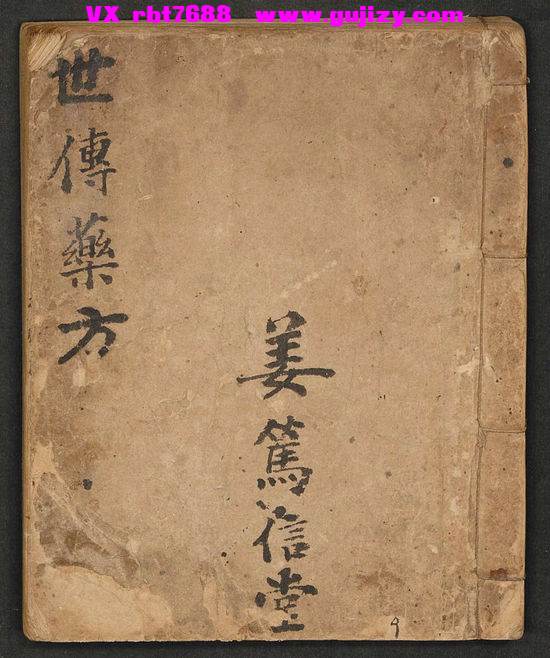 VX rbt7688 www.gujizy.com
世傳藥方
姜篤信堂
9